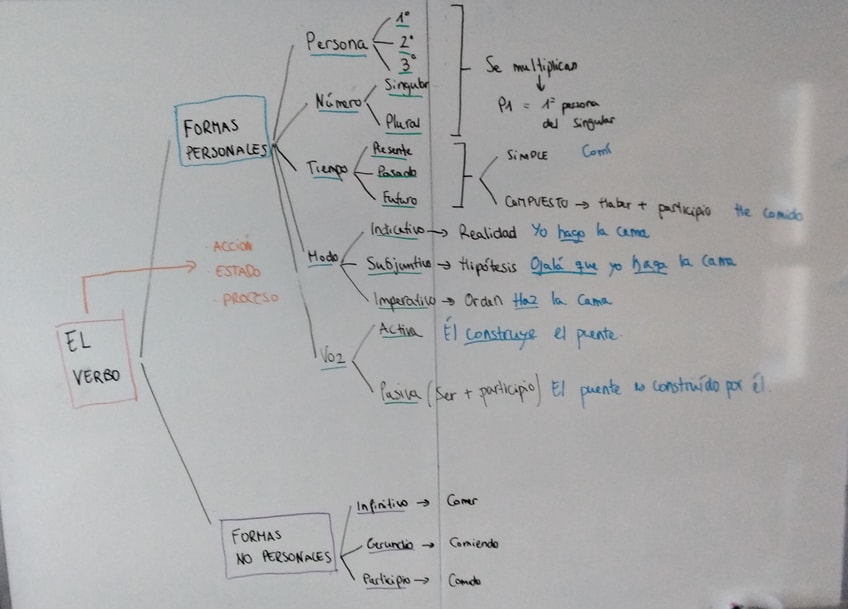 EL
VERBO
· ACCIÓN
· ESTADO
· PROCESO
FORMAS
PERSONALES
Persona
1ª
2ª
3ª
Número
Singular
Plural
Se multiplican
P1 = 1ª persona
del singular
Tiempo
Presente
Pasado
Futuro
SIMPLE Comí
COMPUESTO → Haber + participio He comido
Modo
Indicativo → Realidad Yo hago la cama
Subjuntivo → Hipótesis Ojalá que yo haga la cama
Imperativo → Orden Haz la cama
Voz
Activa Él construye el puente.
Pasiva (Ser + participio) El puente construído por él.
FORMAS
NO PERSONALES
Infinitivo → Comer
Gerundio → Comiendo
Participio → Comido